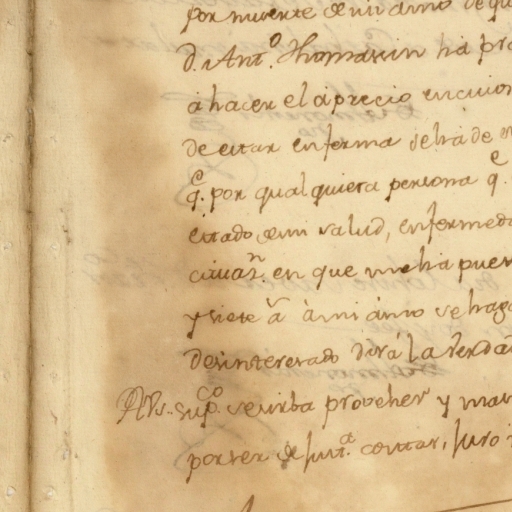 por muerte de mi amo de qu
d.n Ant.o Thomasin ha pr
á hacer el aprecio en cuio
de estar enferma se ha de
q.e por qual quiera persona q.e
estado de mi salud, enfermeda
cituaz.n en que me ha puest
y siete a.s à mi ámo se haga
desinteresado dirá la verda
A Vs. sup.co se sirba probeher y man
por ser de just.a costas, juro